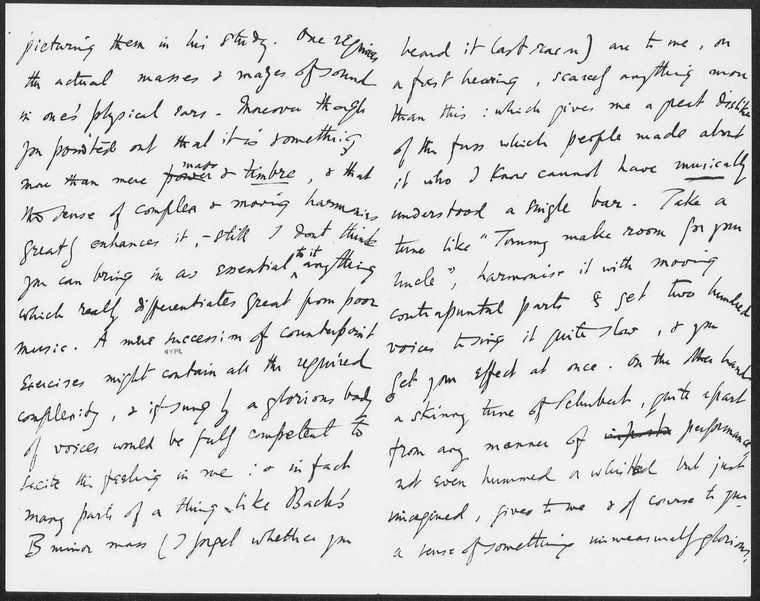 picturing them in his study. One requires
the actual masses & mazes of sound
in one's physical ears. Moreover though
you pointed out that it is something
more than mere power mass & timbre, & that
the sense of complex & moving harmonies
greatly enhances it, - still I don't think
you can bring in as essential to it anything
which really differentiates great from poor
music. A mere succession of counterpoint
NYPL
exercises might contain all the required
complexity, & if sung by a glorious body
of voices would be fully competent to
excite this feeling in me: & in fact
many parts of a thing like Bach's
B minor mass (I forget whether you
heard it last season) are to me, on
a first hearing, scarcely anything more
than this: which gives me a great dislike
of the fuss which people made about
it who I know cannot have musically
understood a single bar. Take a
tune like "Tommy make room for your
Uncle", harmonise it with moving
contrapuntal parts & get two hundred
voices to sing it quite slow, & you
get your effect at once. On the other hand
a skinny tune of Schubert, quite apart
from any manner of performance
not even hummed or whistled but just
imagined, gives to me & of course to you
a sense of something unmeasurably glorious,